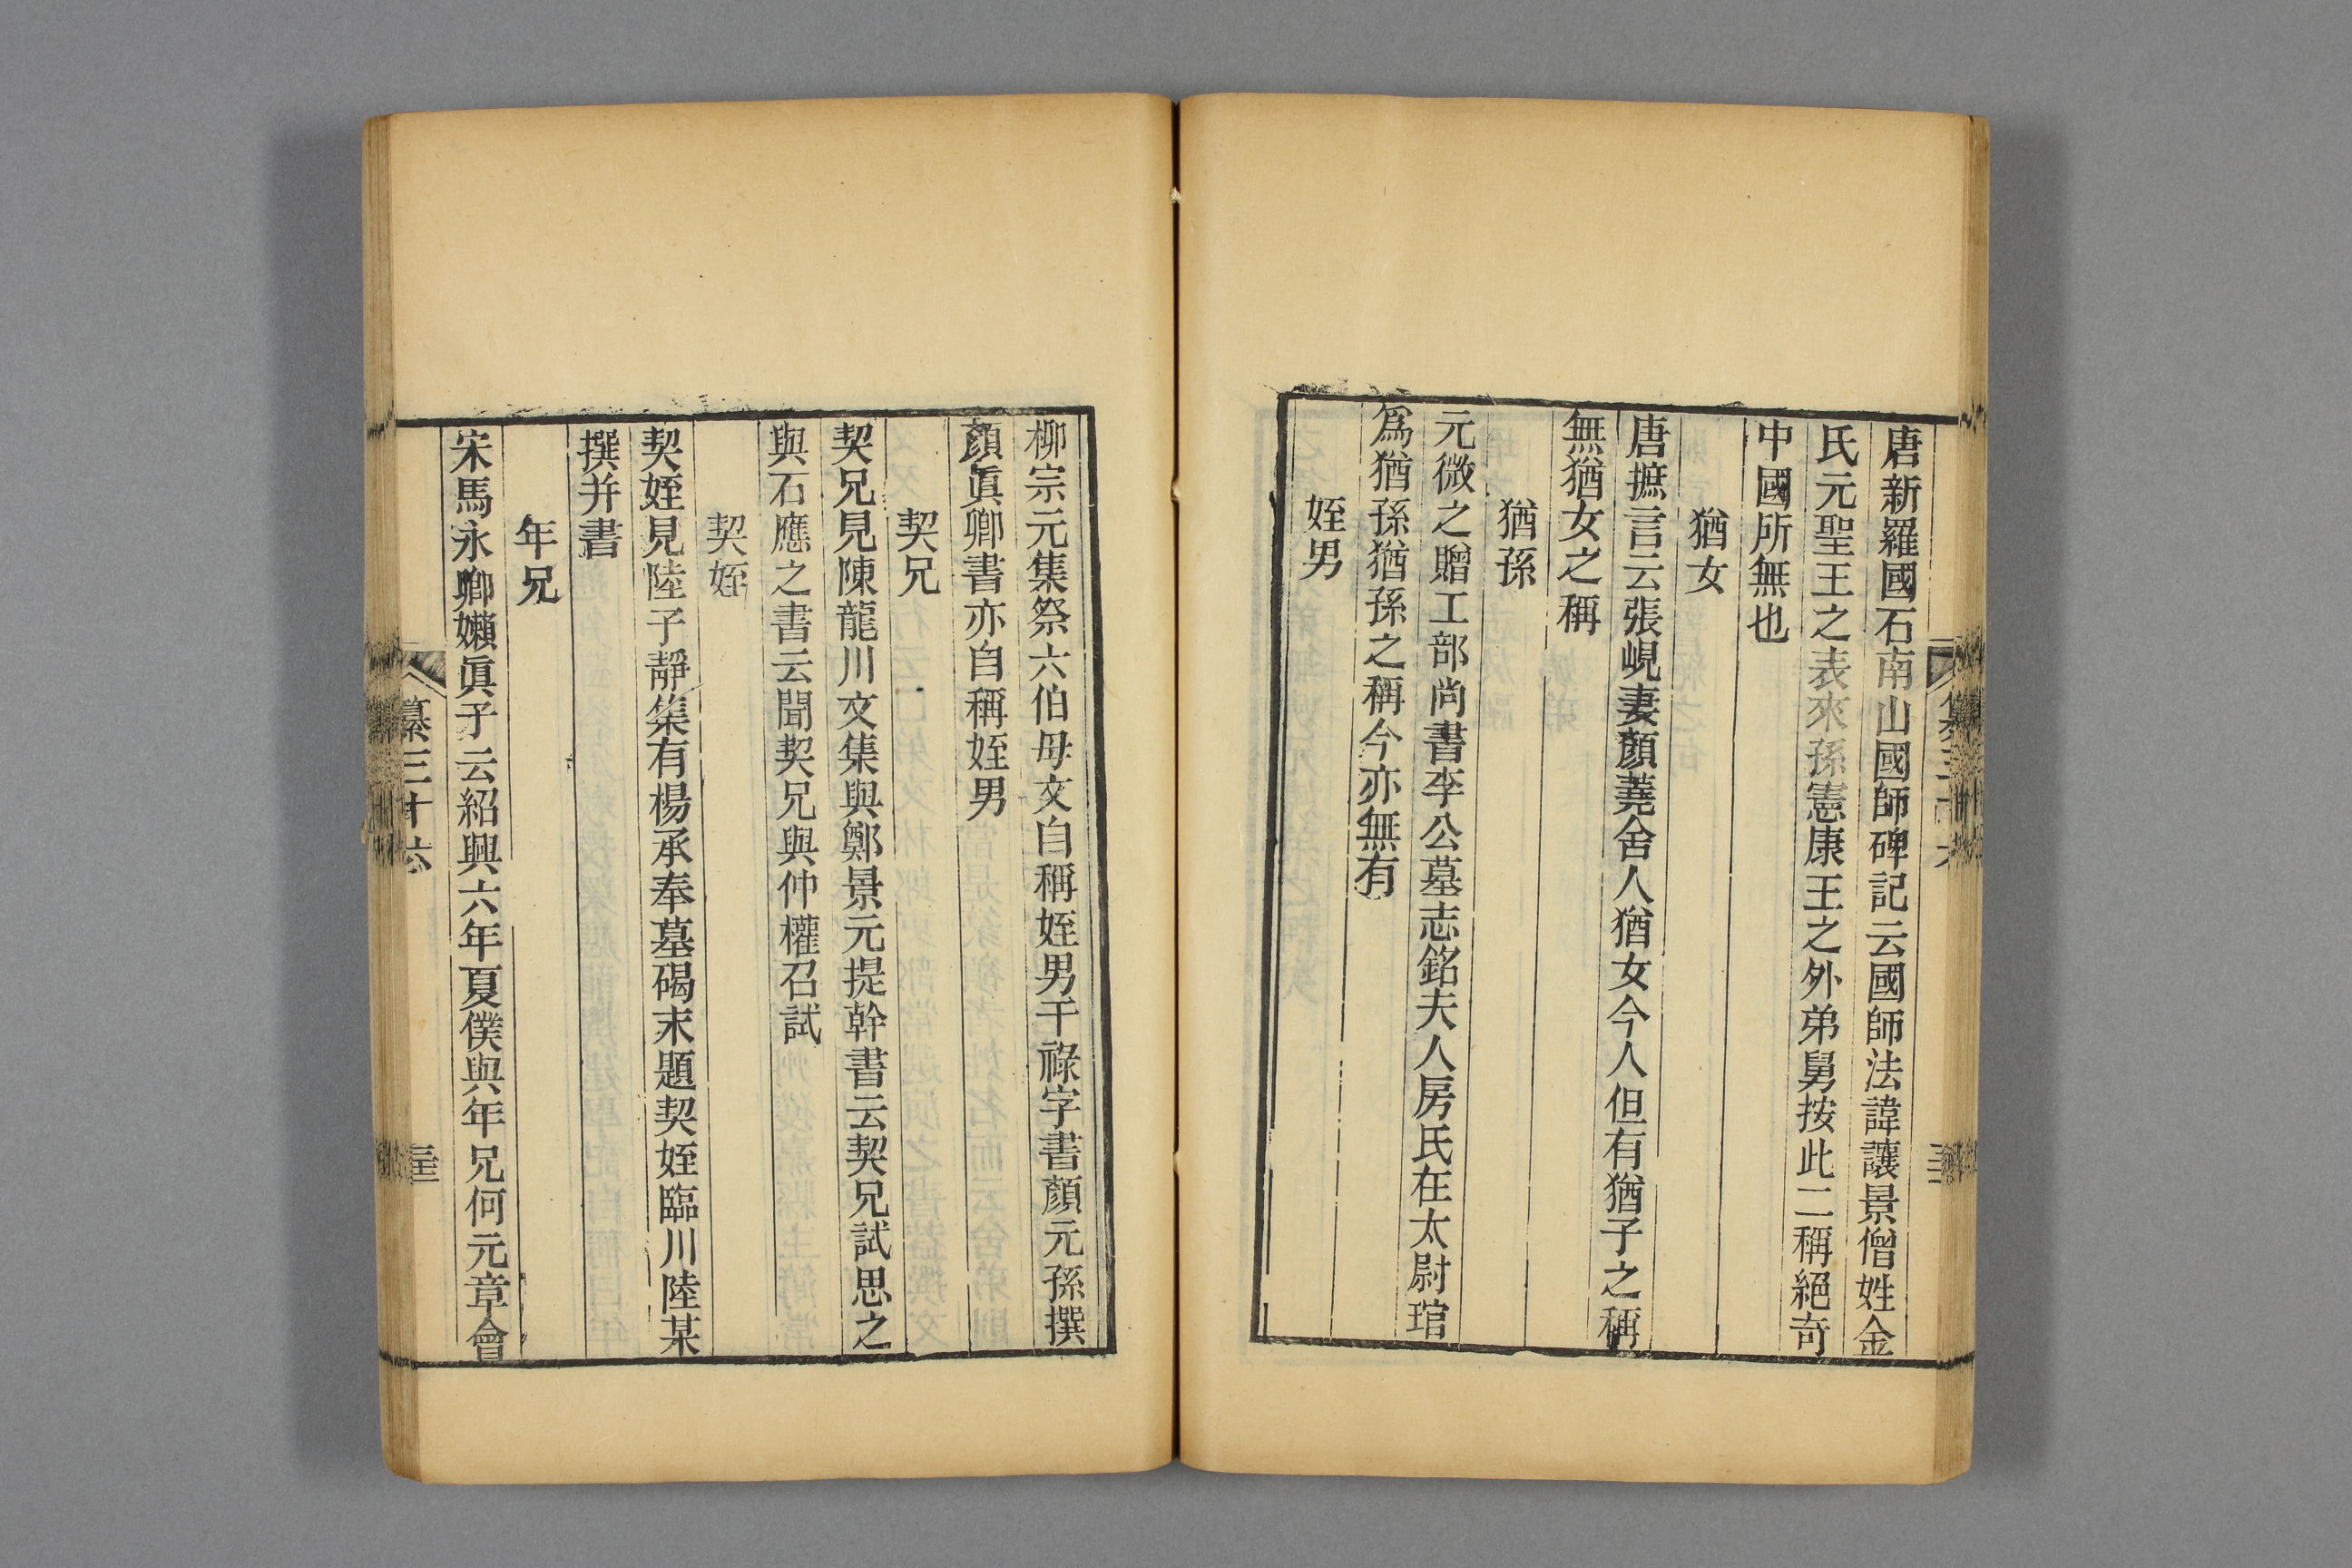 唐新羅國石南山國師碑記云國師法諱讓景僧姓金
氏元聖王之表來孫憲康王之外弟舅按此二稱絕奇
中國所無也
猶女
唐摭言云張峴妻顏蕘舍人猶女今人但有猶子之稱
無猶女之稱
猶孫
元微之贈工部尚書李公墓志銘夫人房氏在太尉琯
爲猶孫猶孫之稱今亦無有
姪男
柳宗元集祭六伯母文自稱姪男干祿字書顏元孫撰
顏眞卿書亦自稱姪男
契兄
契兄見陳龍川文集與鄭景元提幹書云契兄試思之
與石應之書云聞契兄與仲權召試
契姪
契姪見陸子靜集有楊承奉墓碣末題契姪臨川陸某
撰并書
年兄
宋馬永卿嬾眞子云紹興六年夏僕與年兄何元章會
纂三十六